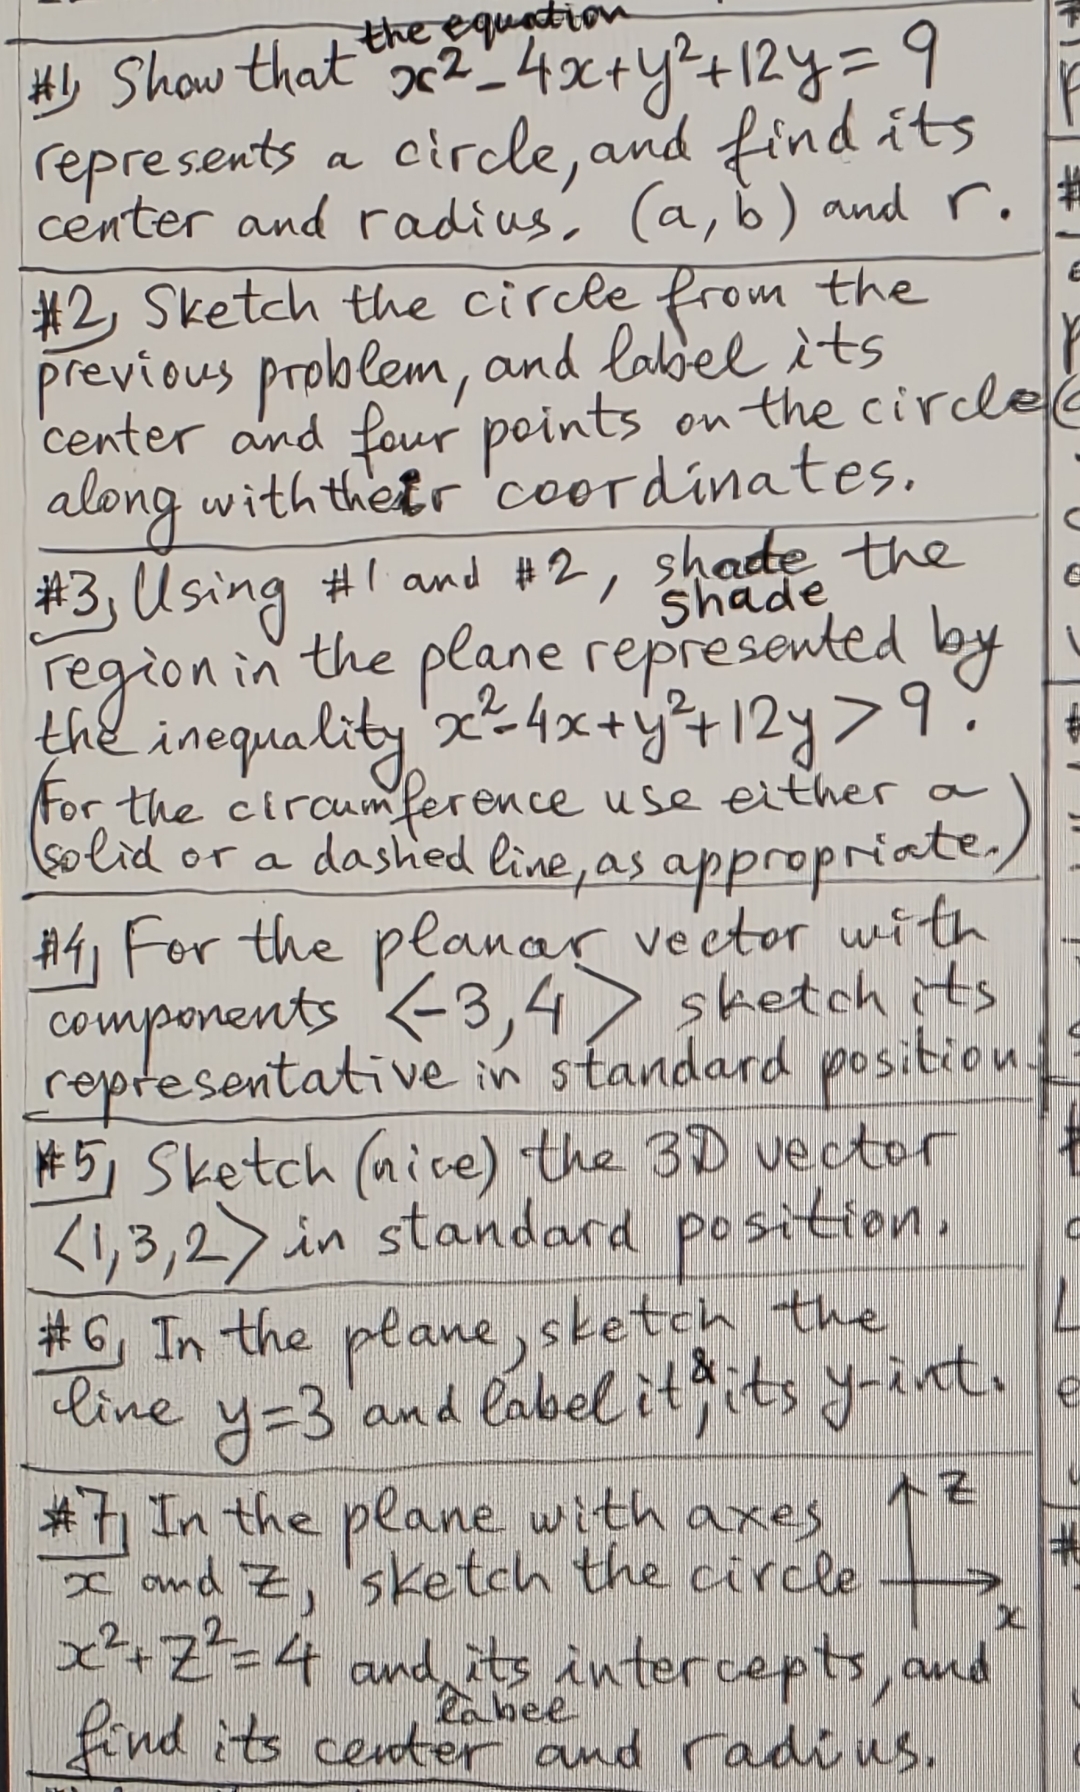 the equation
#1, Show that x²-4x+y²+12y=9
represents a circle, and find its
center and radius. (a,b) and r.
#2, Sketch the circle from the
previous problem, and label its
center and four points on the circle
along with their coordinates.
#3, Using #1 and #2, shade the
shade
region in the plane represented by
the inequality x²-4x+y²+12y>9.
(For the circumference use either a
solid or a dashed line, as appropriate.)
#4, For the planar vector with
components <-3,4> sketch its
representative in standard position.
#5, Sketch (nice) the 3D vector
<1,3,2> in standard position.
#6, In the plane, sketch the
line y=3 and label it, & its y-int.
#7, In the plane with axes
z
x and z, sketch the circle
x
x²+z²=4 and its intercepts, and
label
find its center and radius.